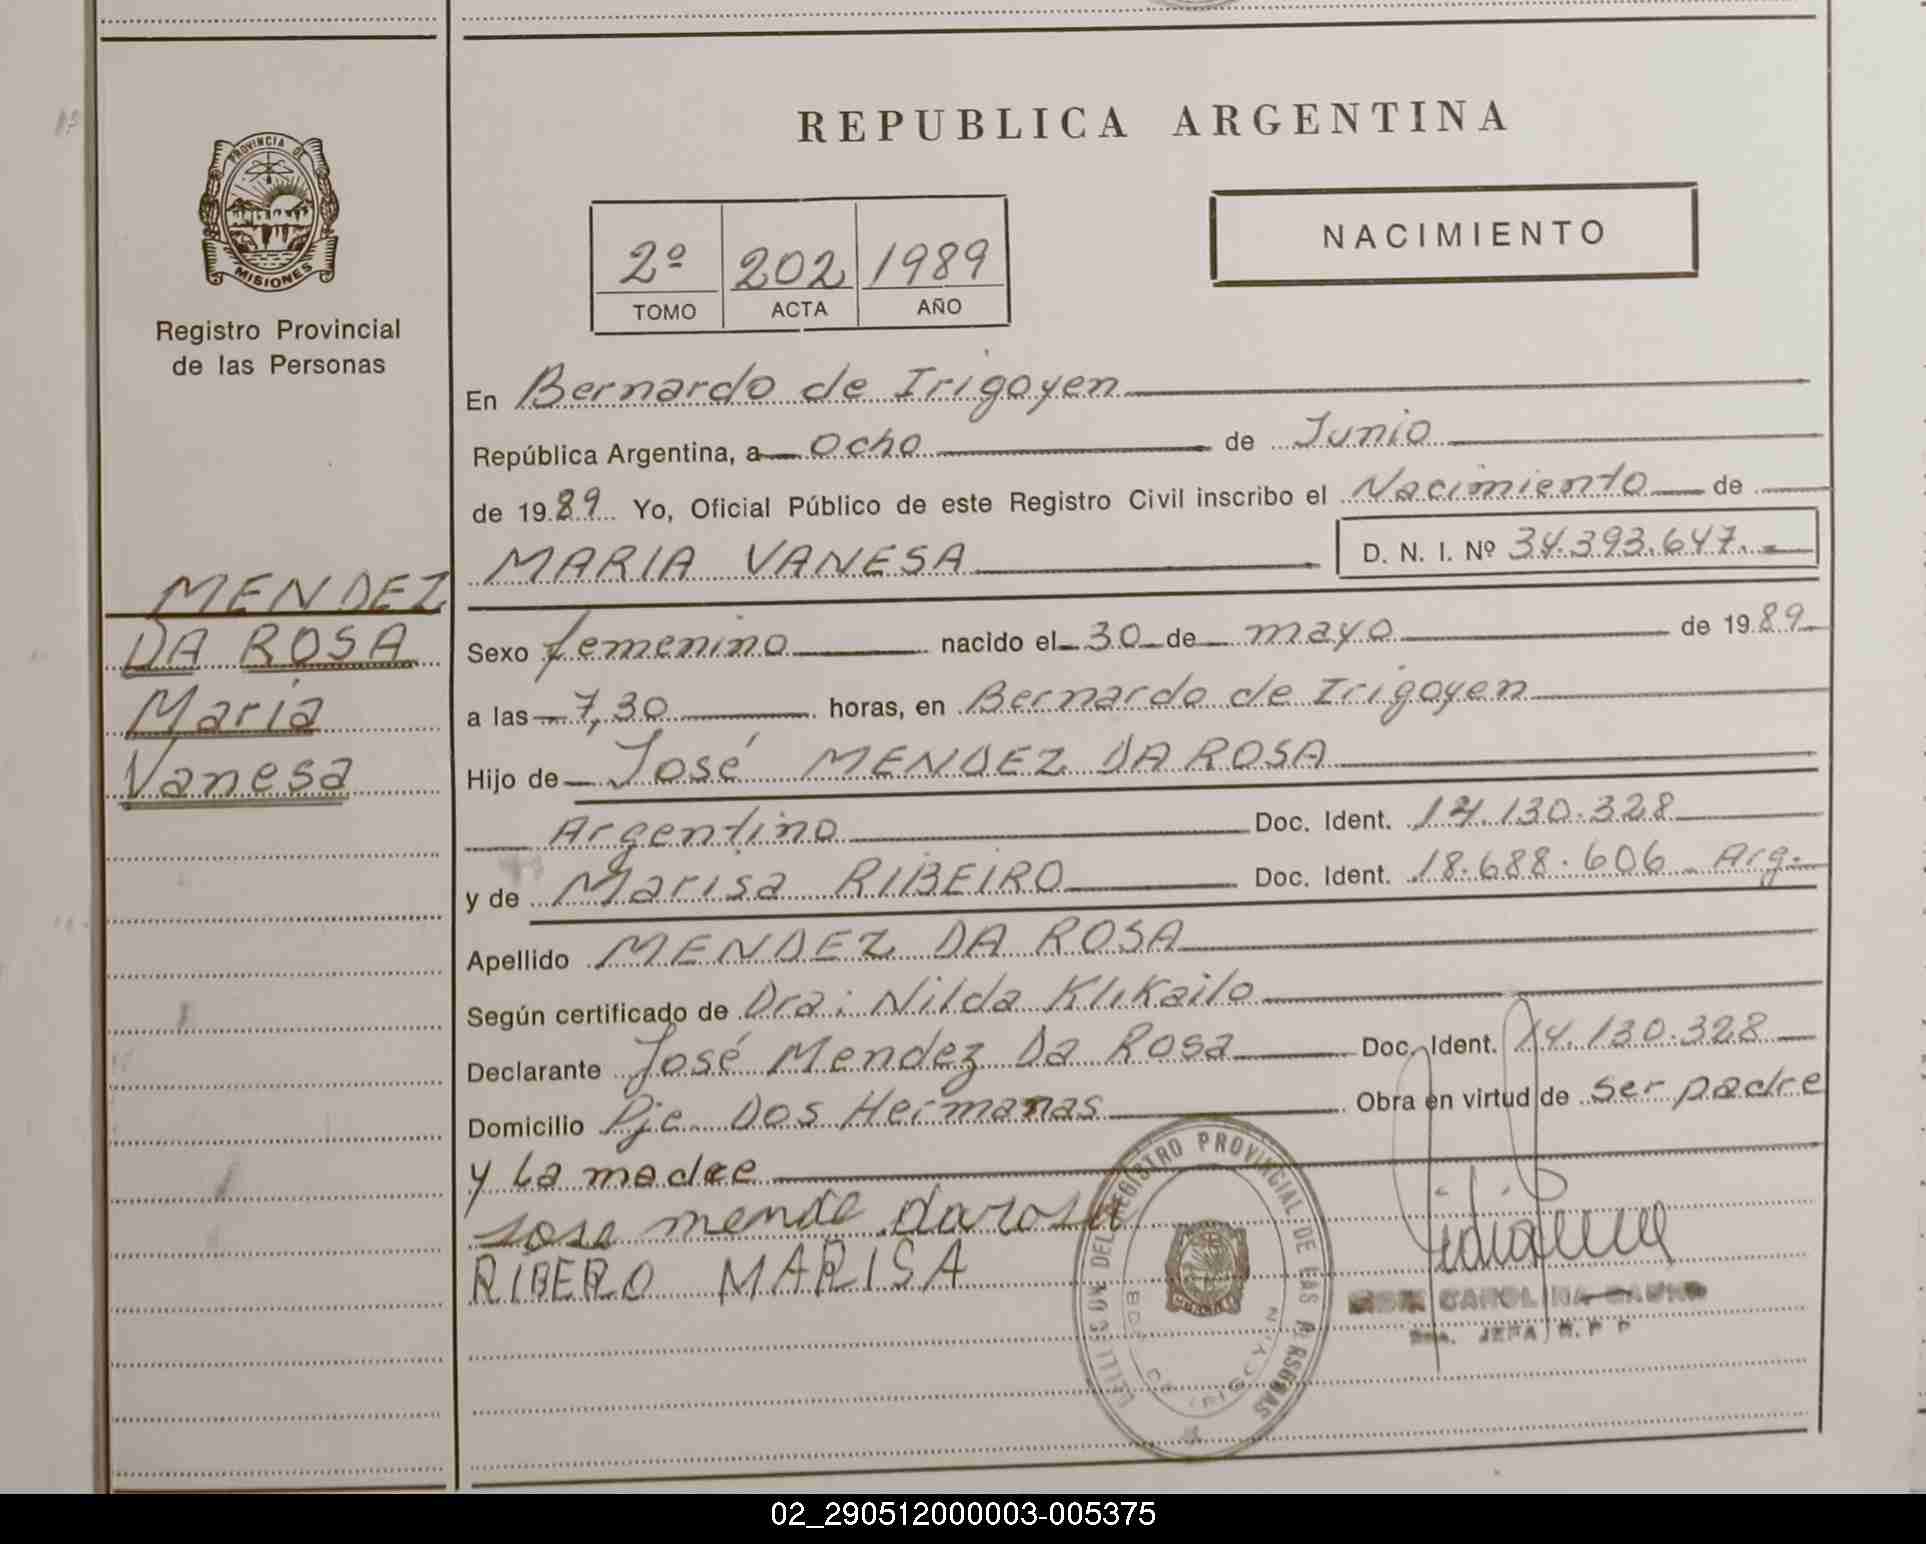 REPUBLICA ARGENTINA
PROVINCIA DE
MISIONES
Registro Provincial
de las Personas
2º 202 1989
TOMO ACTA AÑO
NACIMIENTO
En Bernardo de Irigoyen
República Argentina, a Ocho de Junio
de 1989 Yo, Oficial Público de este Registro Civil inscribo el Nacimiento de
MARIA VANESA D. N. I. Nº 34.393.647.
MENDEZ
DA ROSA
Maria
Vanesa
Sexo femenino nacido el 30 de mayo de 1989
a las 7,30 horas, en Bernardo de Irigoyen
Hijo de José MENDEZ DA ROSA
Argentino Doc. Ident. 14.130.328
y de Marisa RIBEIRO Doc. Ident. 18.688.606 Arg.
Apellido MENDEZ DA ROSA
Según certificado de Dra: Nilda Klikailo
Declarante José Mendez Da Rosa Doc. Ident. 14.130.328
Domicilio Pje. Dos Hermanas Obra en virtud de ser padre
y La madre
Jose mende darosa
RIBERO MARISA
DEL REGISTRO PROVINCIAL DE LAS PERSONAS
CAROLINA
JEFA R. P. P
02_290512000003-005375